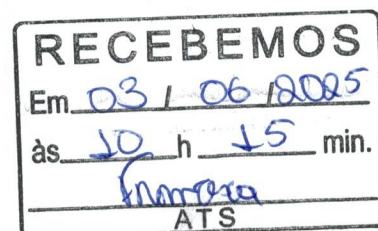 RECEBEMOS
Em 03 / 06 / 2025
às 10 h 15 min.
ATS